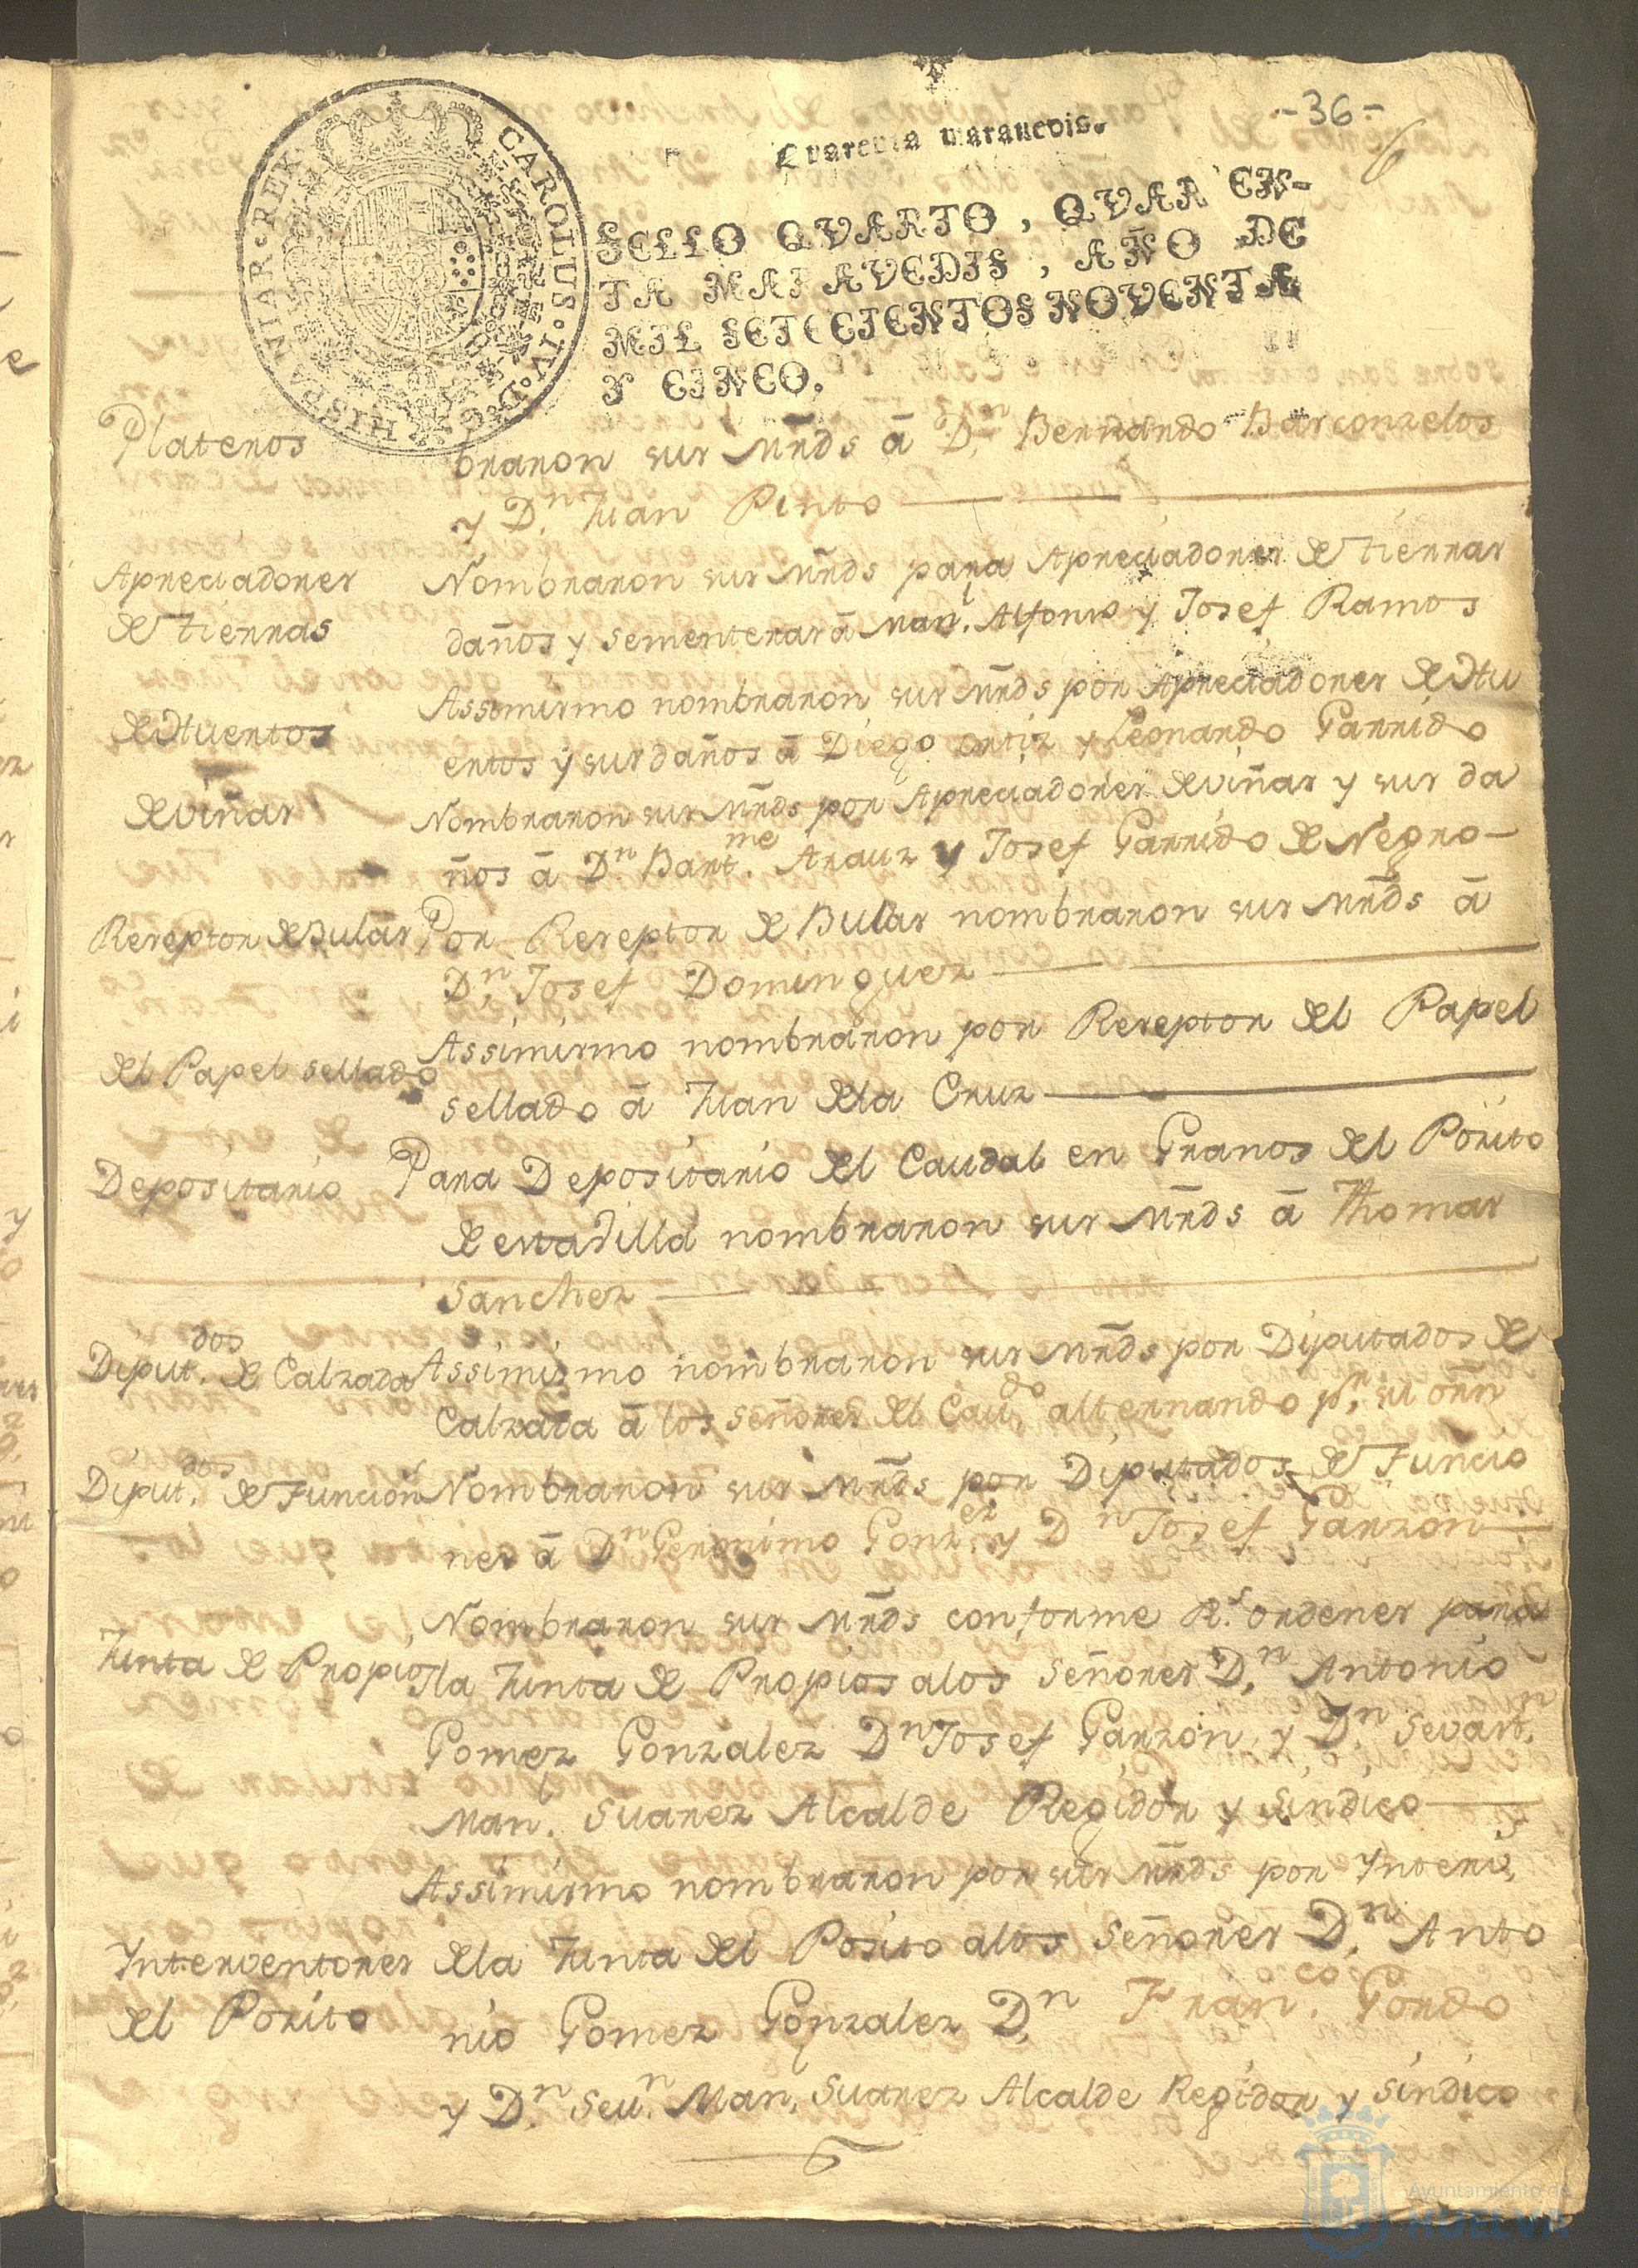 -36-
6
Quarenta marauedis.
CAROLUS·IV·D·G·HISPANIAR·REX·
SELLO QVARTO, QVAREN-
TA MARAVEDIS, AÑO DE
MIL SETECIENTOS NOVENTA
Y CINCO.
Plateros
braron sus Mrds â Dn. Bernardo Barconzelos
y Dn. Juan Pinto
Apreciadores
de tierras
Nombraron sus Mrds para Apreciadores de tierras
daños y sementeras â Manl. Alfonso y Josef Ramos
de Huertos
Assimismo nombraron sus Mrds por Apreciadores de Hu
ertos y sus daños â Diego Ortiz y Leonardo Garrido
de viñas
Nombraron sus Mrds por Apreciadores de viñas y sus da
ños â Dn. Bartme. Arauz y Josef Garrido de Negro
Rezeptor de Bulas
Por Rezeptor de Bulas nombraron sus Mrds â
Dn. Josef Dominguez
del Papel sellado
Assimismo nombraron por Rezeptor del Papel
sellado â Juan dela Cruz
Depositario
Para Depositario del Caudal en Granos del Pozito
de esta villa nombraron sus Mrds â Thomas
Sanchez
Diputdos. de Calzada
Assimismo nombraron sus Mrds por Diputados de
Calzada â los señores del Cavdo. alternando pr. su orñ
Diputdos. de Funcions
Nombraron sus Mrds por Diputados de Funcio
nes â Dn Geronimo Gonzez. y Dn Josef Garzon
Junta de Propios
Nombraron sus Mrds conforme Rs. ordenes para
la Junta de Propios alos señores Dn. Antonio
Gomez Gonzalez Dn Josef Garzon, y Dn. Sevastn.
Man. Suarez Alcalde Regidor y Sindico
Assimismo nombraron por sus Mrds por Intervs.
Interventores
del Pozito
dela Junta del Posito alos señores Dn. Anto
nio Gomez Gonzalez Dn. Franco. Gordo
y Dn. Sevn. Man. Suarez Alcalde Regidor y Sindico
Ayuntamiento de
HUELVA